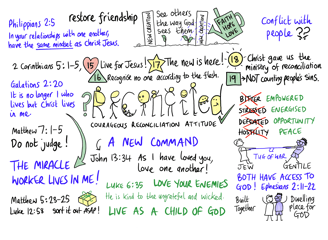 Philippians 2:5
In your relationships with one another,
have the same mindset as Christ Jesus.
restore friendship
NEW CREATION
See others
the way God
sees them
NEW CREATION
FAITH
HOPE
LOVE
Conflict with
people ??
2 Corinthians 5:1-5,
15 Live for Jesus!
17 The new is here!
16 Recognise no one according to the flesh.
18 Christ gave us the
ministry of reconciliation
19 → NOT counting people's sins.
Galatians 2:20
It is no longer I who
lives but Christ lives
in me.
? Reconciled
COURAGEOUS RECONCILIATION ATTITUDE
BITTER EMPOWERED
STRESSED ENERGISED
DEFEATED OPPORTUNITY
HOSTILITY PEACE
Matthew 7:1-5
Do not judge!
A NEW COMMAND
John 13:34 As I have loved you,
love one another!
TUG OF WAR
JEW GENTILE
THE MIRACLE
WORKER LIVES IN ME!
BOTH HAVE ACCESS TO
GOD! Ephesians 2:11-22
Luke 6:35 LOVE YOUR ENEMIES
He is kind to the ungrateful and wicked.
LIVE AS A CHILD OF GOD
Matthew 5:23-25
Luke 12:58 sort it out ASAP!
Built
Together
Dwelling
place for
GOD